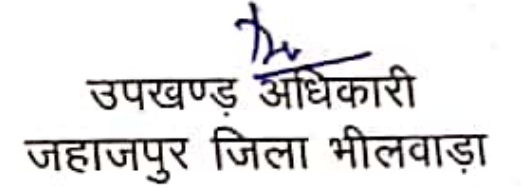 उपखण्ड़ अधिकारी
जहाजपुर जिला भीलवाड़ा